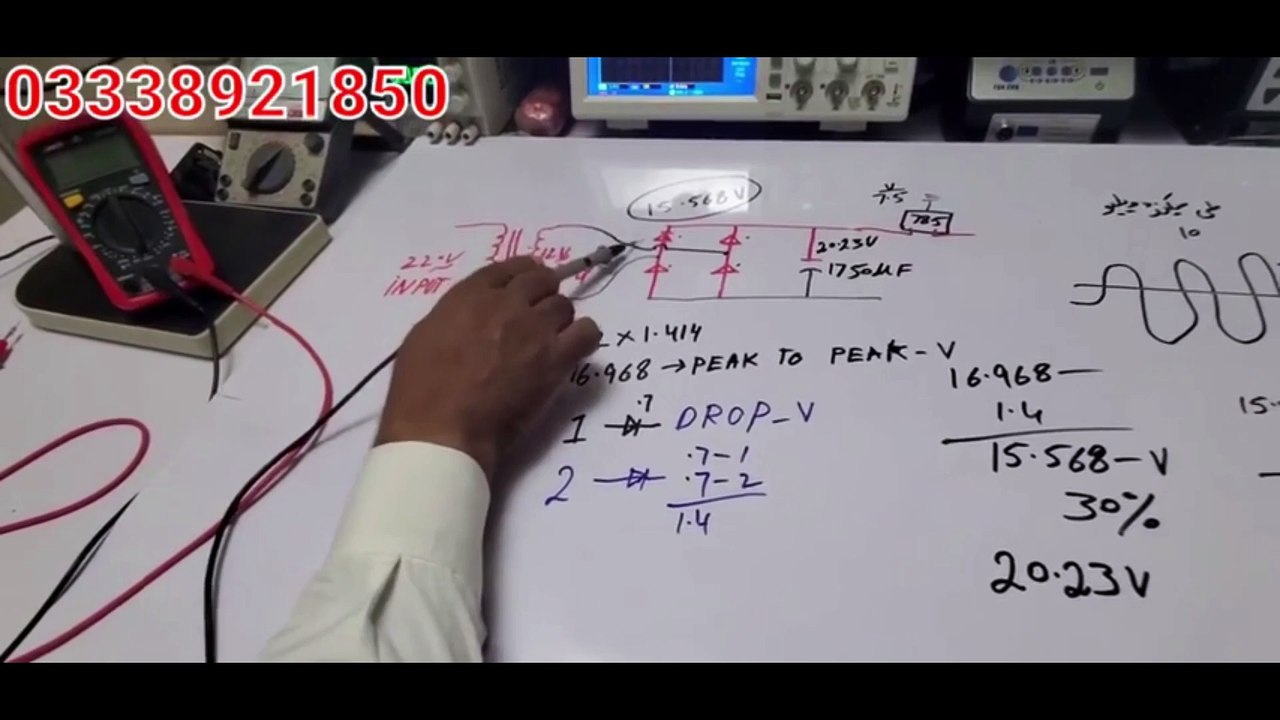 03338921850
15.568V
V
7.5
785
220V
INPOT
12V
20.23V
1750µF
10
x 1.414
16.968 → PEAK TO PEAK-V
.7
1 DROP-V
.7-1
2 .7-2
1.4
16.968 —
1.4
15.568-V
30%
20.23V
15.